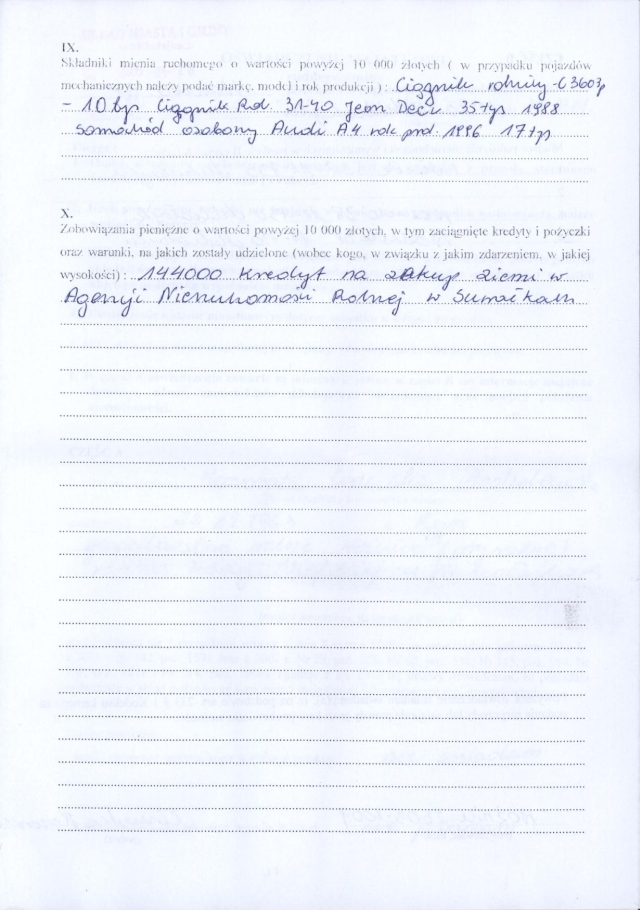 IX.
Składniki mienia ruchomego o wartości powyżej 10 000 złotych ( w przypadku pojazdów
mechanicznych należy podać markę, model i rok produkcji ) : Ciągnik rolniczy - C 3603p
- 10 tyś Ciągnik Rol. 31-40 Jeon Deer 35 tyś 1988
samochód osobowy Audi A4 rok prod. 1996 17 tyś
X.
Zobowiązania pieniężne o wartości powyżej 10 000 złotych, w tym zaciągnięte kredyty i pożyczki
oraz warunki, na jakich zostały udzielone (wobec kogo, w związku z jakim zdarzeniem, w jakiej
wysokości) : 144000 kredyt na zakup ziemi w
Agencji Nieruchomości Rolnej w Suwałkach